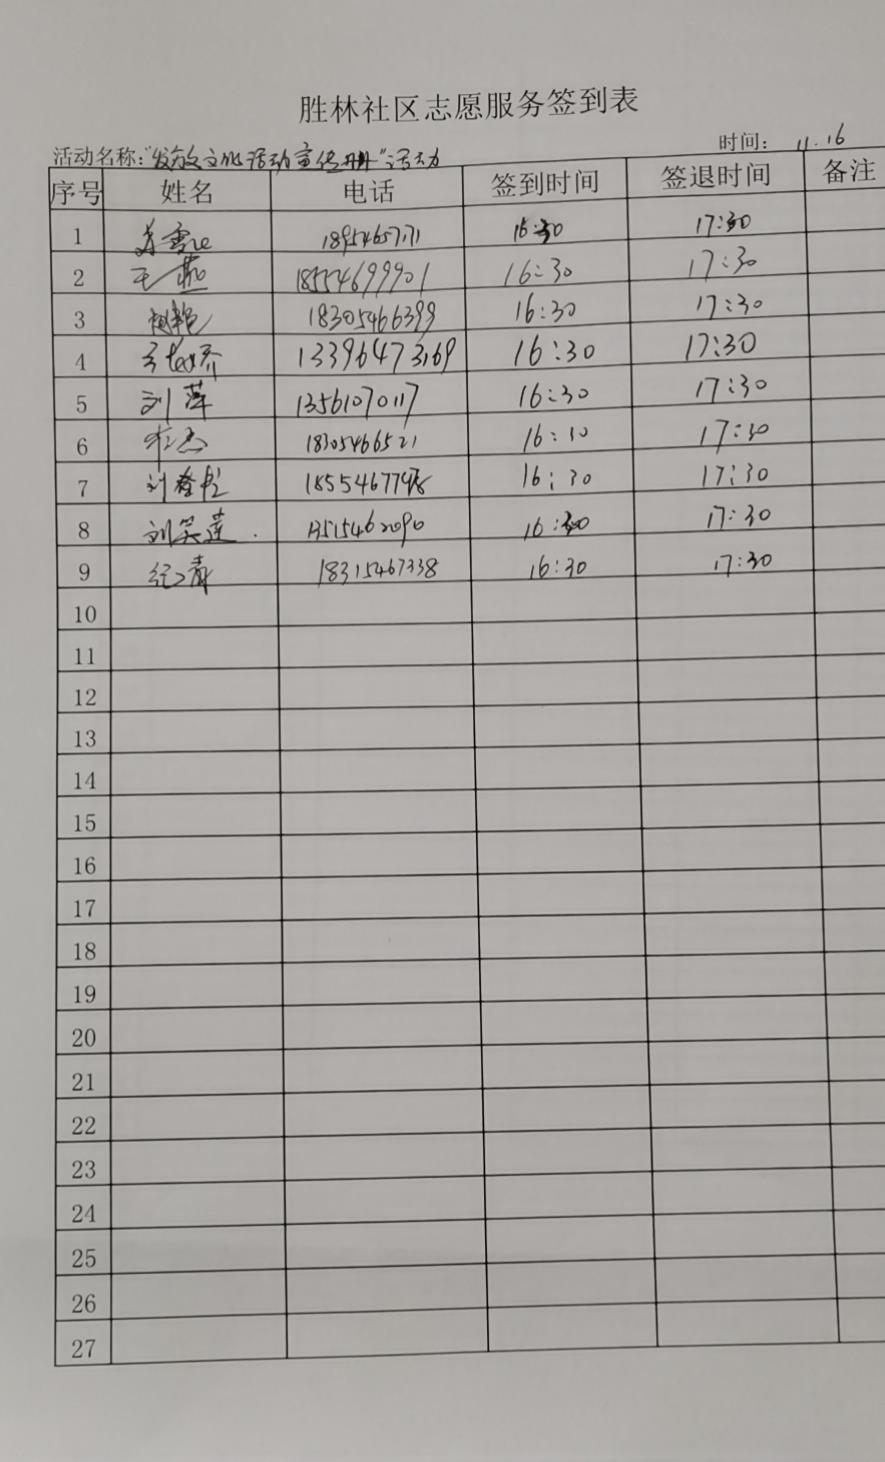 胜林社区志愿服务签到表
活动名称:"发放文化活动宣传册"活动 时间: 11.16
序号 姓名 电话 签到时间 签退时间 备注
1 18954657171 16:30 17:30
2 王燕 18554699901 16:30 17:30
3 18305466399 16:30 17:30
4 13396473169 16:30 17:30
5 刘萍 13561070117 16:30 17:30
6 18305466521 16:30 17:30
7 16:30 17:30
8 刘笑莲 13515462090 16:30 17:30
9 18315467338 16:30 17:30
10
11
12
13
14
15
16
17
18
19
20
21
22
23
24
25
26
27